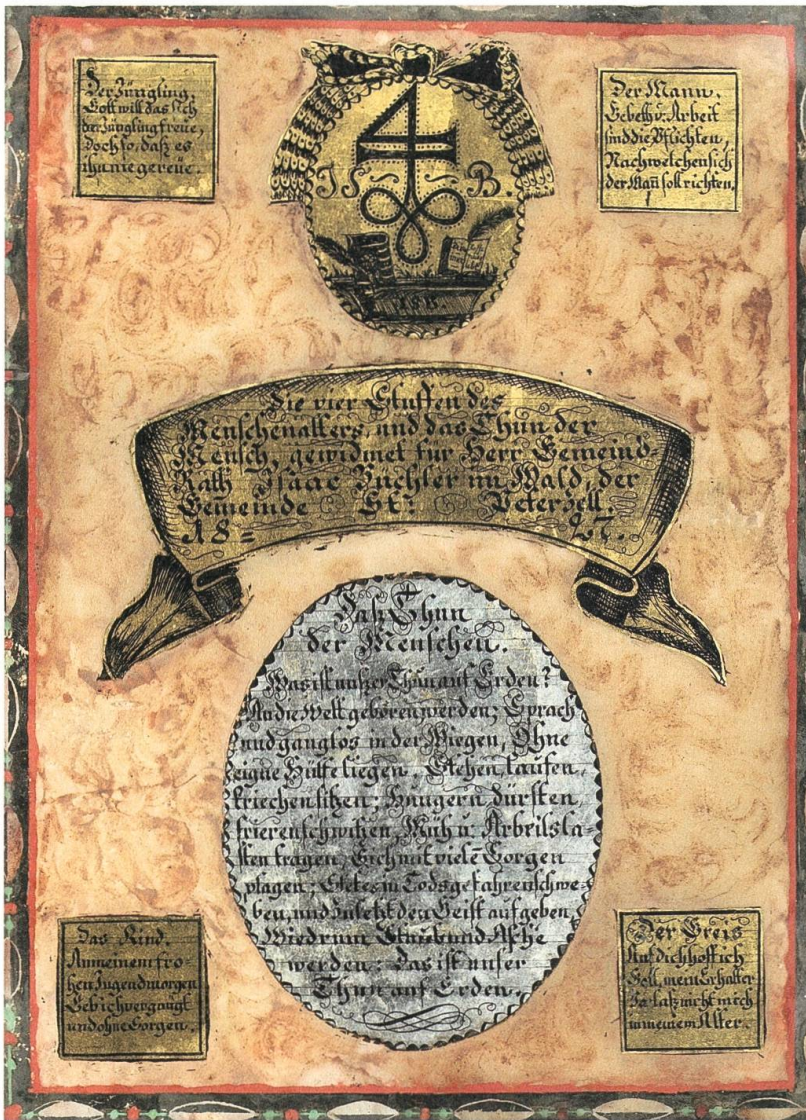 Der Jüngling.
Gott will das sich
der Jüngling freue,
doch so, daß es
ihn nie gereue.
Der Mann.
Gebeth u: Arbeit
sind die Pflichten,
Nach welchen sich
der Mañ soll richten.
4
IS B.
ISB.
Die vier Stuffen des
Menschenalters, und das Thun der
Mensch, gewidmet für Herr Gemeind-
Rath Isaac Buchler im Wald, der
Gemeinde St: Peterzell.
18= 27.
Daß Thun
der Menschen.
Was ist unßer Thun auf Erden?
An die Welt geboren werden; Sprach
und ganglos in der Wiegen, Ohne
eigne Hülfe liegen. Stehen, laufen,
kriechen sitzen; Hungern dürsten,
frieren schwitzen, Müh u: Arbeitsla-
sten tragen, Sich mit vielē Sorgen
plagen; Stetes in Tods gefahren schwe-
ben, und zuletzt den Geist aufgeben,
Wiedrum Staub und Asche
werden: Das ist unser
Thun auf Erden.
Das Kind.
An meinem fro-
hen Jugendmorgen
Leb ich vergnügt
und ohne Sorgen.
Der Greis
Auf dich hoff ich
Gott, mein Erhalter
So laß nicht mich
in meinem Alter.